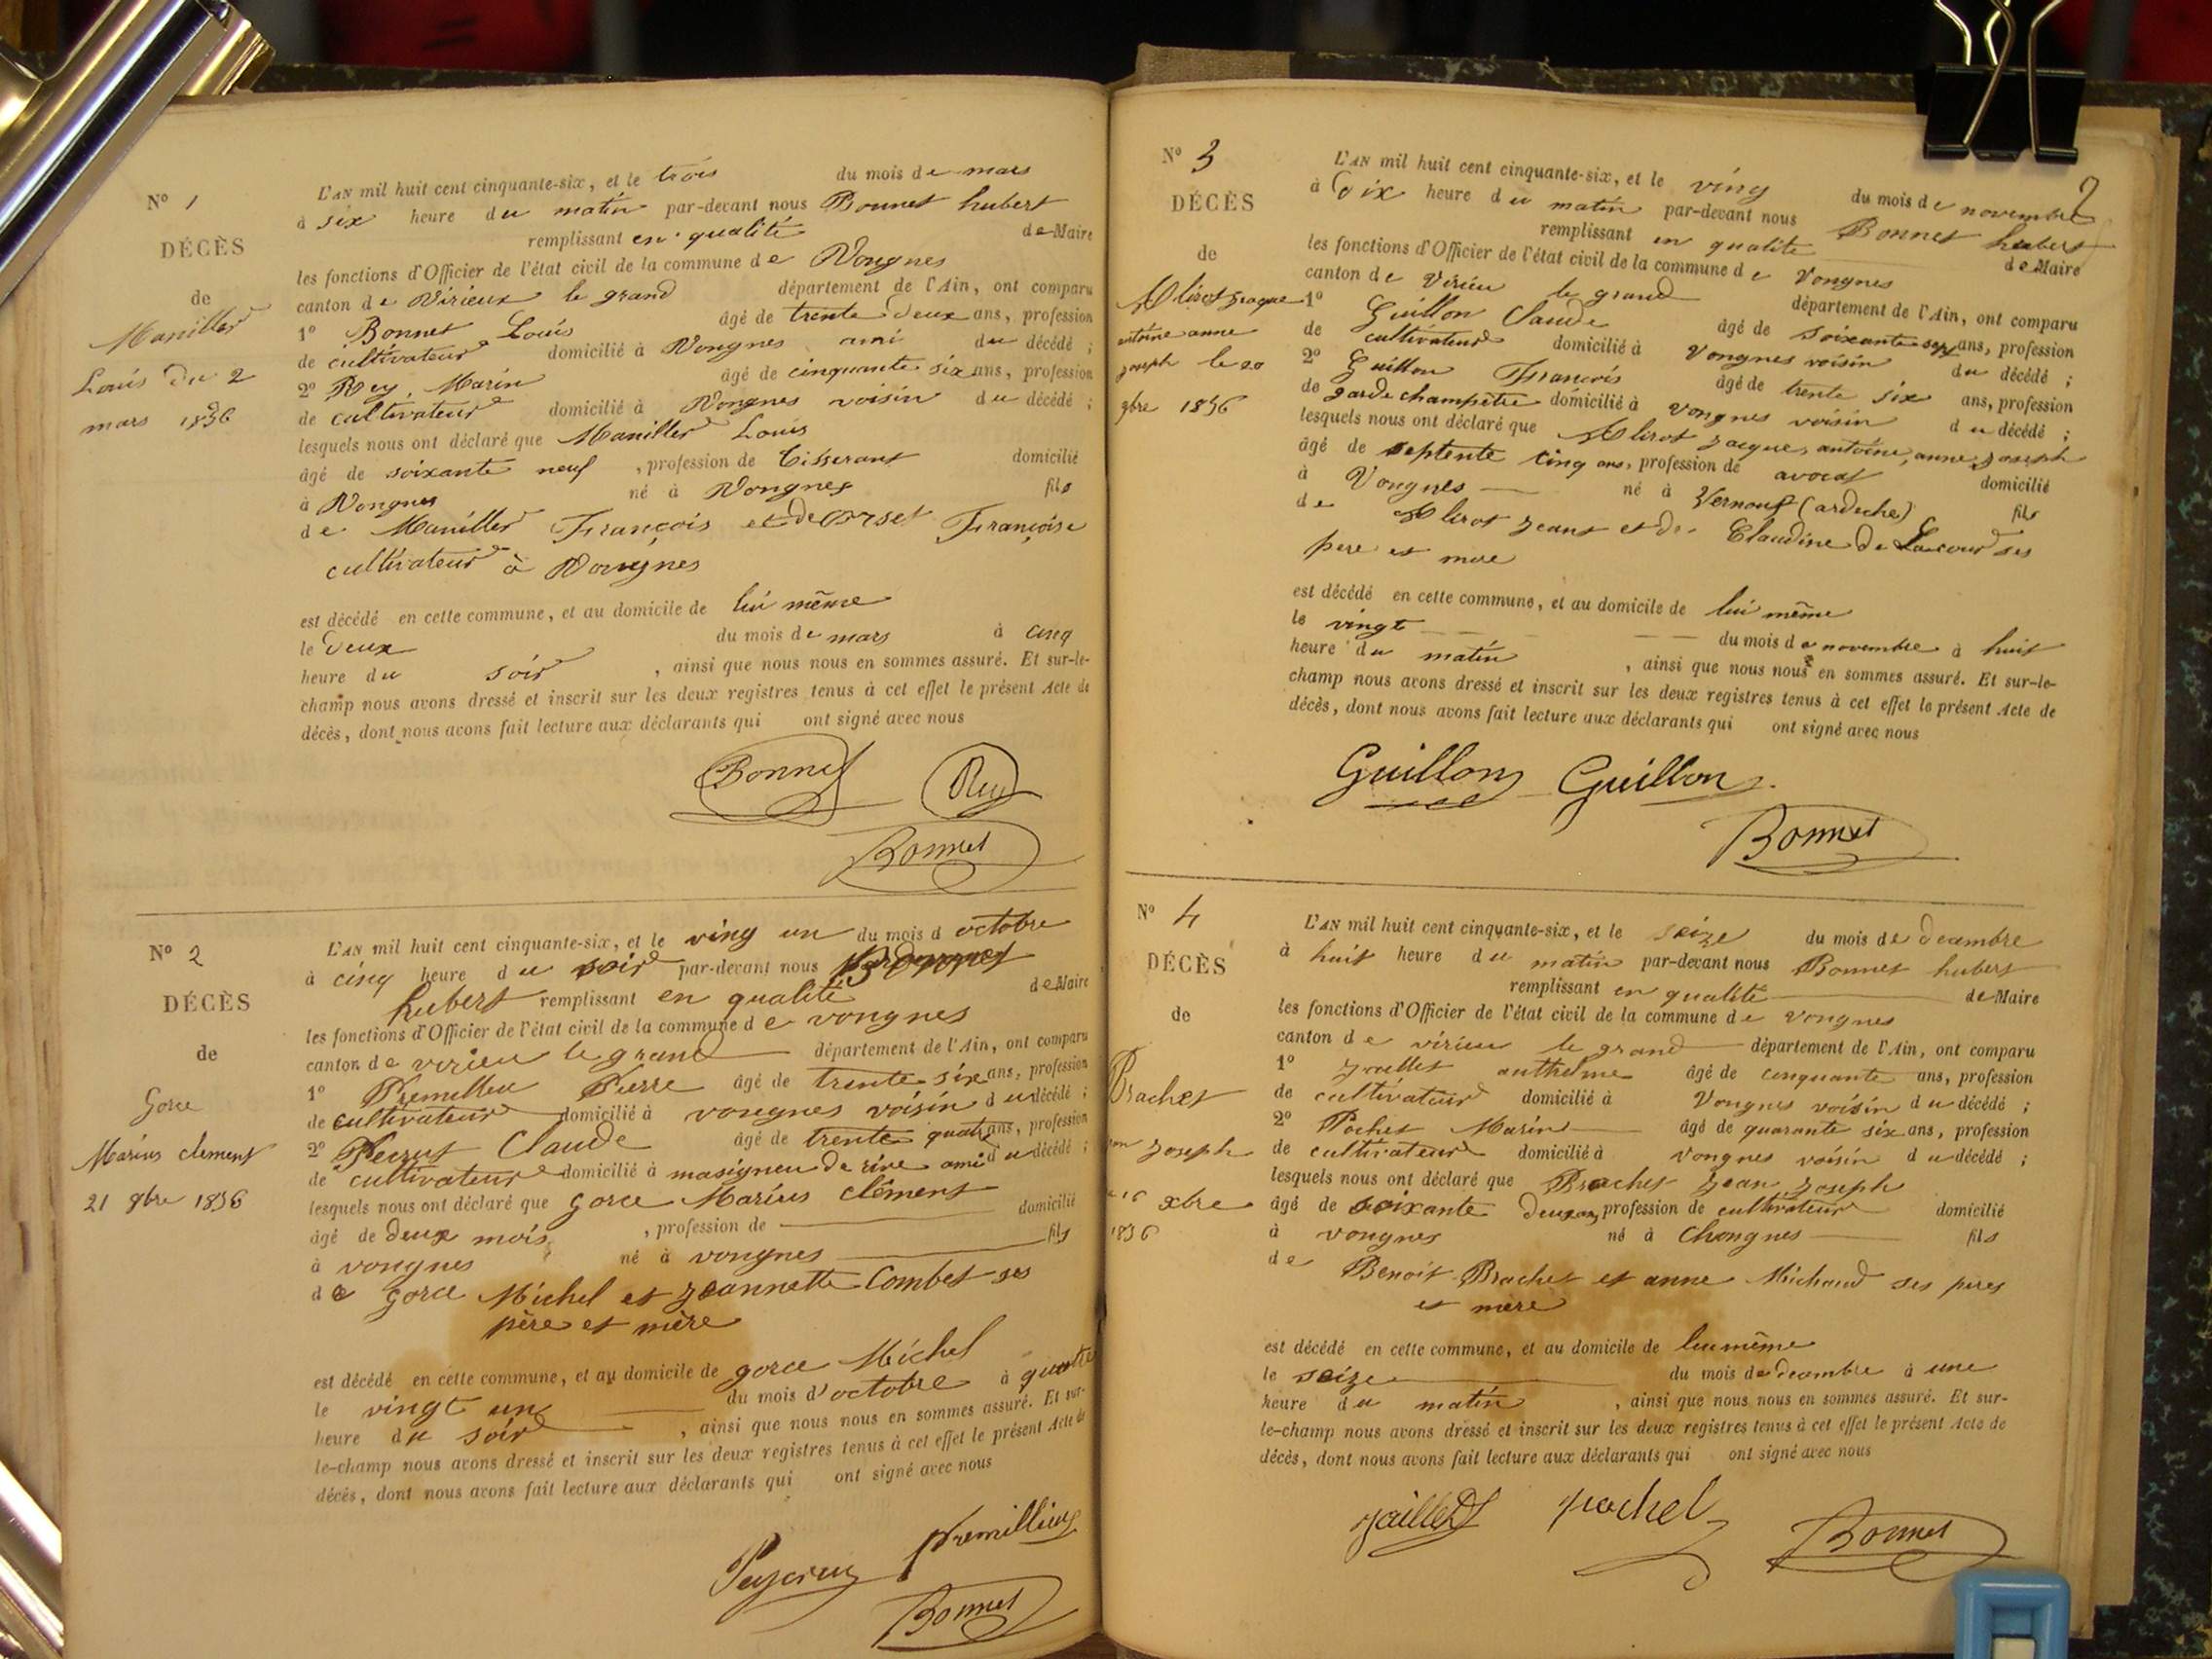 N° 1
DÉCÈS
de
Maniller
Louis du 2
mars 1856
L'AN mil huit cent cinquante-six, et le trois du mois de mars
à six heure du matin par-devant nous Bonnet hubert
remplissant en qualité de Maire
les fonctions d'Officier de l'état civil de la commune de Vongnes
canton de Virieux le grand département de l'Ain, ont comparu
1° Bonnet Louis âgé de trente deux ans, profession
de cultivateur domicilié à Vongnes ami du décédé ;
2° Rey Marin âgé de cinquante six ans, profession
de cultivateur domicilié à Vongnes voisin du décédé ;
lesquels nous ont déclaré que Maniller Louis
âgé de soixante neuf , profession de tisserant domicilié
à Vongnes né à Vongnes fils
de Maniller François et de orset Françoise
cultivateur à Vongnes
est décédé en cette commune, et au domicile de lui même
le deux du mois de mars à cinq
heure du soir , ainsi que nous nous en sommes assuré. Et sur-le-
champ nous avons dressé et inscrit sur les deux registres tenus à cet effet le présent Acte de
décès, dont nous avons fait lecture aux déclarants qui ont signé avec nous
Bonnet Rey
Bonnet
N° 2
DÉCÈS
de
Gorce
Marius clement
21 8bre 1856
L'AN mil huit cent cinquante-six, et le ving un du mois d octobre
à cinq heure du soir par-devant nous Bonnet
hubert remplissant en qualité de Maire
les fonctions d'Officier de l'état civil de la commune de vongnes
canton de virieu le grand département de l'Ain, ont comparu
1° Premillieu Pierre âgé de trente six ans, profession
de cultivateur domicilié à vongnes voisin du décédé ;
2° Claude âgé de trente quatre ans, profession
de cultivateur domicilié à masigneu de rive ami du décédé ;
lesquels nous ont déclaré que gorce Marius clément
âgé de deux mois , profession de domicilié
à vongnes né à vongnes fils
de gorce Michel et jeannette Combet ses
père et mère
est décédé en cette commune, et au domicile de gorce Michel
le vingt un du mois d'octobre à quatre
heure du soir , ainsi que nous nous en sommes assuré. Et sur-
le-champ nous avons dressé et inscrit sur les deux registres tenus à cet effet le présent Acte de
décès, dont nous avons fait lecture aux déclarants qui ont signé avec nous
premillieux
Bonnet
2
N° 3
DÉCÈS
de
Mlirot jacque
antoine anne
joseph le 20
9bre 1856
L'AN mil huit cent cinquante-six, et le ving du mois de novembre
à dix heure du matin par-devant nous Bonnet hubert
remplissant en qualité de Maire
les fonctions d'Officier de l'état civil de la commune de Vongnes
canton de virieu le grand département de l'Ain, ont comparu
1° Guillon Claude âgé de soixante sept ans, profession
de cultivateur domicilié à Vongnes voisin du décédé ;
2° Guillon François âgé de trente six ans, profession
de garde champêtre domicilié à vongnes voisin du décédé ;
lesquels nous ont déclaré que Mlirot jacque, antoine, anne, joseph
âgé de septente cinq ans, profession de avocat domicilié
à Vongnes né à Vernouf (ardeche) fils
de Mlirot jeant et de Claudine de Lacour ses
pere et mere
est décédé en cette commune, et au domicile de lui même
le vingt du mois de novembre à huit
heure du matin , ainsi que nous nous en sommes assuré. Et sur-le-
champ nous avons dressé et inscrit sur les deux registres tenus à cet effet le présent Acte de
décès, dont nous avons fait lecture aux déclarants qui ont signé avec nous
Guillon Guillon
Bonnet
N° 4
DÉCÈS
de
Brachet
joseph
16 xbre
1856
L'AN mil huit cent cinquante-six, et le seize du mois de decembre
à huit heure du matin par-devant nous Bonnet hubert
remplissant en qualité de Maire
les fonctions d'Officier de l'état civil de la commune de vongnes
canton de virieu le grand département de l'Ain, ont comparu
1° jaillet anthelme âgé de cinquante ans, profession
de cultivateur domicilié à Vongnes voisin du décédé ;
2° Pochet Marin âgé de quarante six ans, profession
de cultivateur domicilié à vongnes voisin du décédé ;
lesquels nous ont déclaré que Brachet jean joseph
âgé de soixante deux ans profession de cultivateur domicilié
à vongnes né à Chongnes fils
de Benoit Brachet et anne Michaud ses peres
et mère
est décédé en cette commune, et au domicile de lui même
le seize du mois de decembre à une
heure du matin , ainsi que nous nous en sommes assuré. Et sur-
le-champ nous avons dressé et inscrit sur les deux registres tenus à cet effet le présent Acte de
décès, dont nous avons fait lecture aux déclarants qui ont signé avec nous
jaillet pochet Bonnet